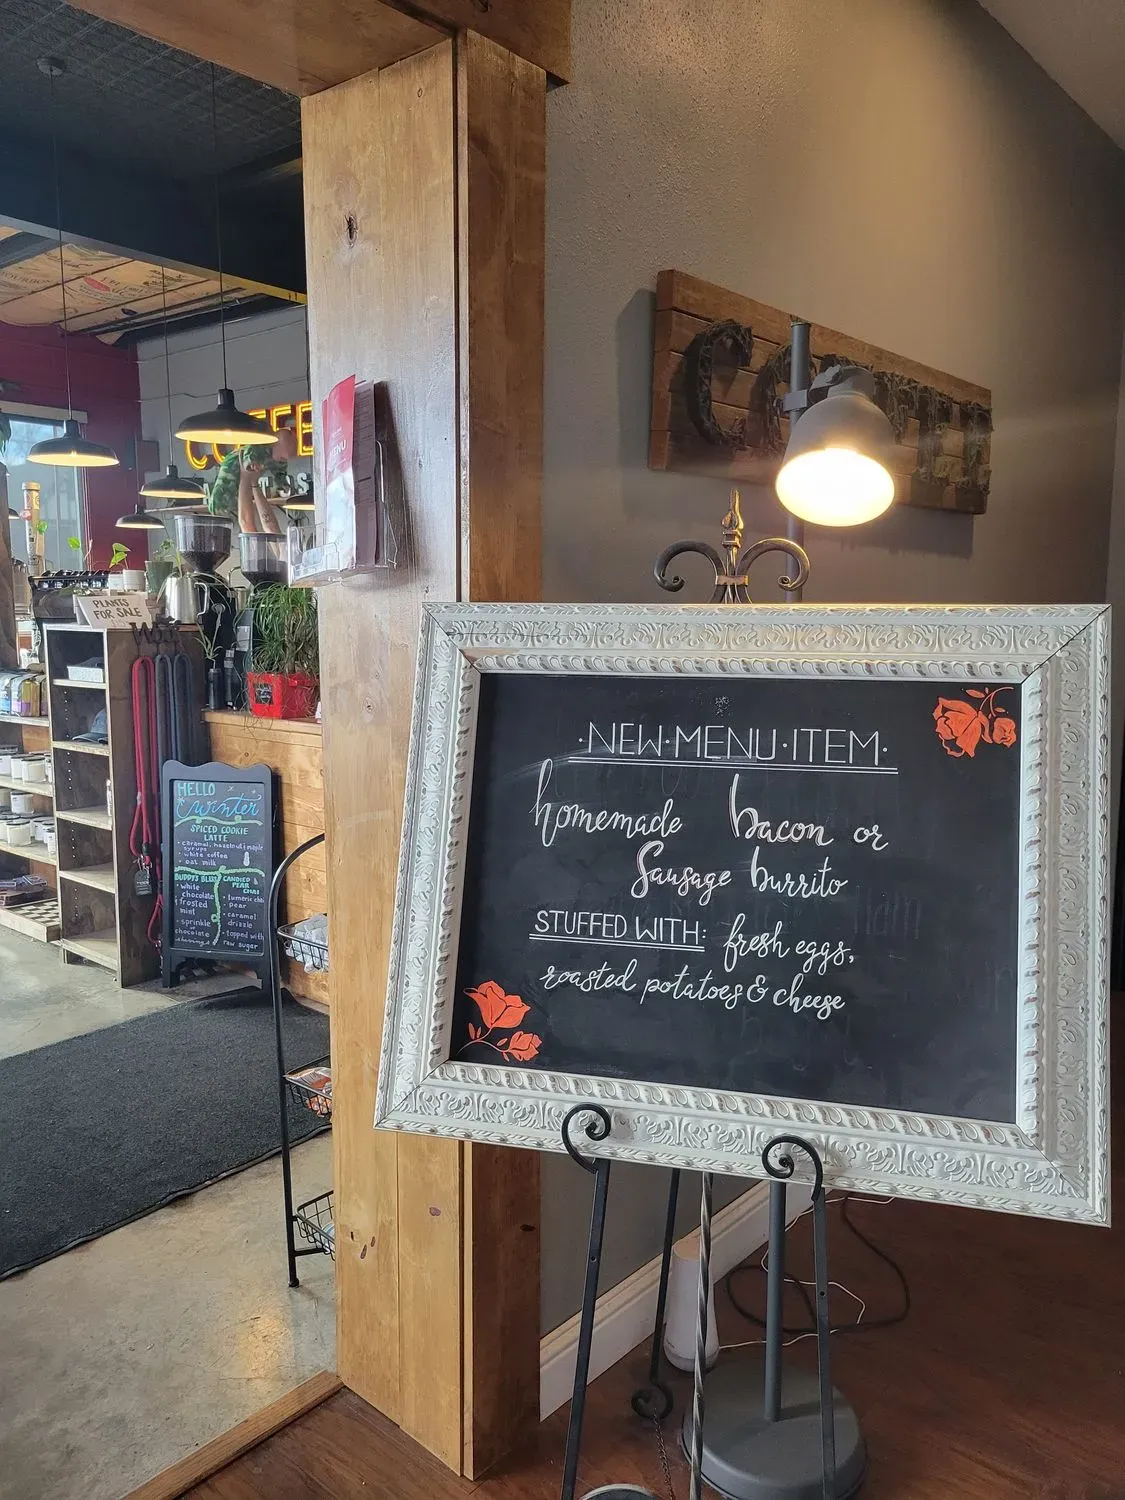 ·NEW·MENU·ITEM·
homemade bacon or
Sausage burrito
STUFFED WITH: fresh eggs,
roasted potatoes & cheese
MENU
PLANTS
FOR SALE
HELLO
winter
SPICED COOKIE
LATTE
• caramel, hazelnut, maple
syrups
• white coffee
• oat milk
• white
chocolate
• frosted
mint
• sprinkle
chocolate
shavings
CANDIED
PEAR
CHAI
• turmeric chai
• pear
• caramel
drizzle
• topped with
raw sugar